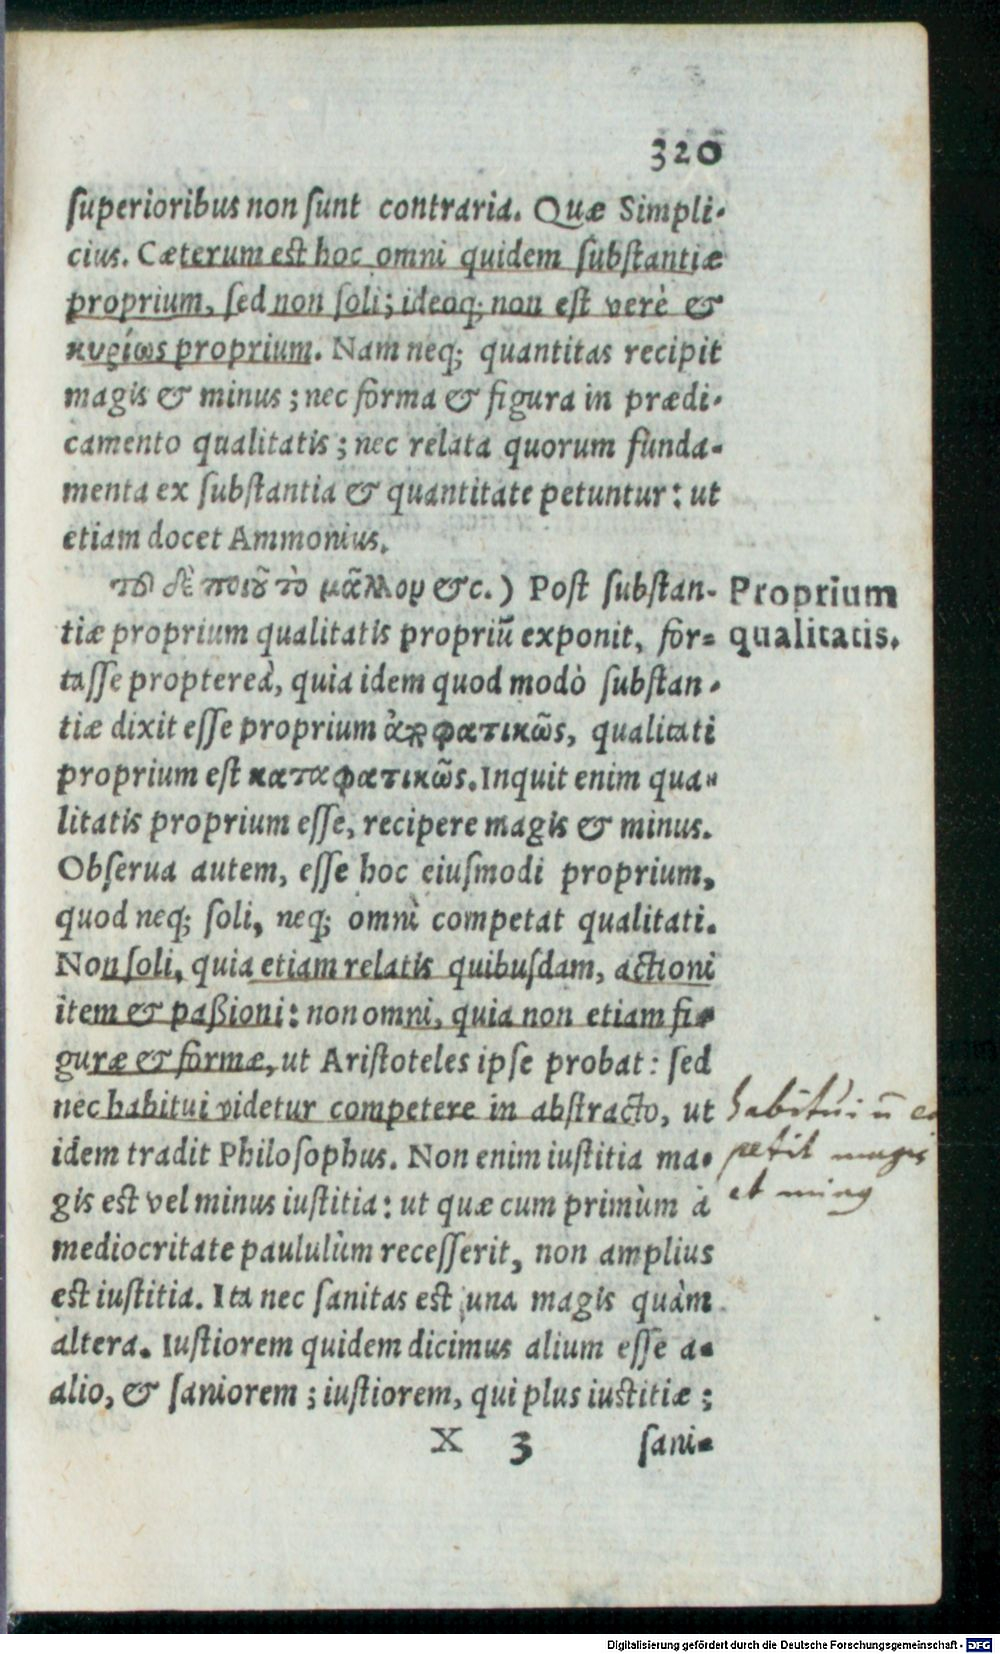 320
ſuperioribus non ſunt contraria. Quæ Simpli-
cius. Cæterum est hoc omni quidem ſubſtantiæ
proprium, ſed non ſoli; ideoq; non eſt verè &
κυρίως proprium. Nam neq; quantitas recipit
magis & minus; nec forma & figura in prædi-
camento qualitatis; nec relata quorum funda-
menta ex ſubſtantia & quantitate petuntur: ut
etiam docet Ammonius.
τῶ δὲ ποιοῦ τὸ μᾶλλον &c.) Post ſubſtan-
Proprium
tiæ proprium qualitatis propriũ exponit, for-
qualitatis.
taſſe propterea, quia idem quod modò ſubſtan-
tiæ dixit eſſe proprium ἀποφατικῶς, qualitati
proprium eſt καταφατικῶς. Inquit enim qua-
litatis proprium eſſe, recipere magis & minus.
Obſerua autem, eſſe hoc eiuſmodi proprium,
quod neq; ſoli, neq; omni competat qualitati.
Non ſoli, quia etiam relatis quibuſdam, actioni
item & paßioni: non omni, quia non etiam fi-
guræ & formæ, ut Ariſtoteles ipſe probat: ſed
nec habitui videtur competere in abſtracto, ut
idem tradit Philoſophus. Non enim iuſtitia ma-
gis est vel minus iuſtitia: ut quæ cum primùm à
mediocritate paululùm receſſerit, non amplius
est iuſtitia. Ita nec ſanitas est una magis quàm
altera. Iuſtiorem quidem dicimus alium eſſe a-
alio, & ſaniorem; iuſtiorem, qui plus iuctitiæ;
X 3 ſani-
habitui ñ co
petit magis
et minus
Digitalisierung gefördert durch die Deutsche Forschungsgemeinschaft - DFG